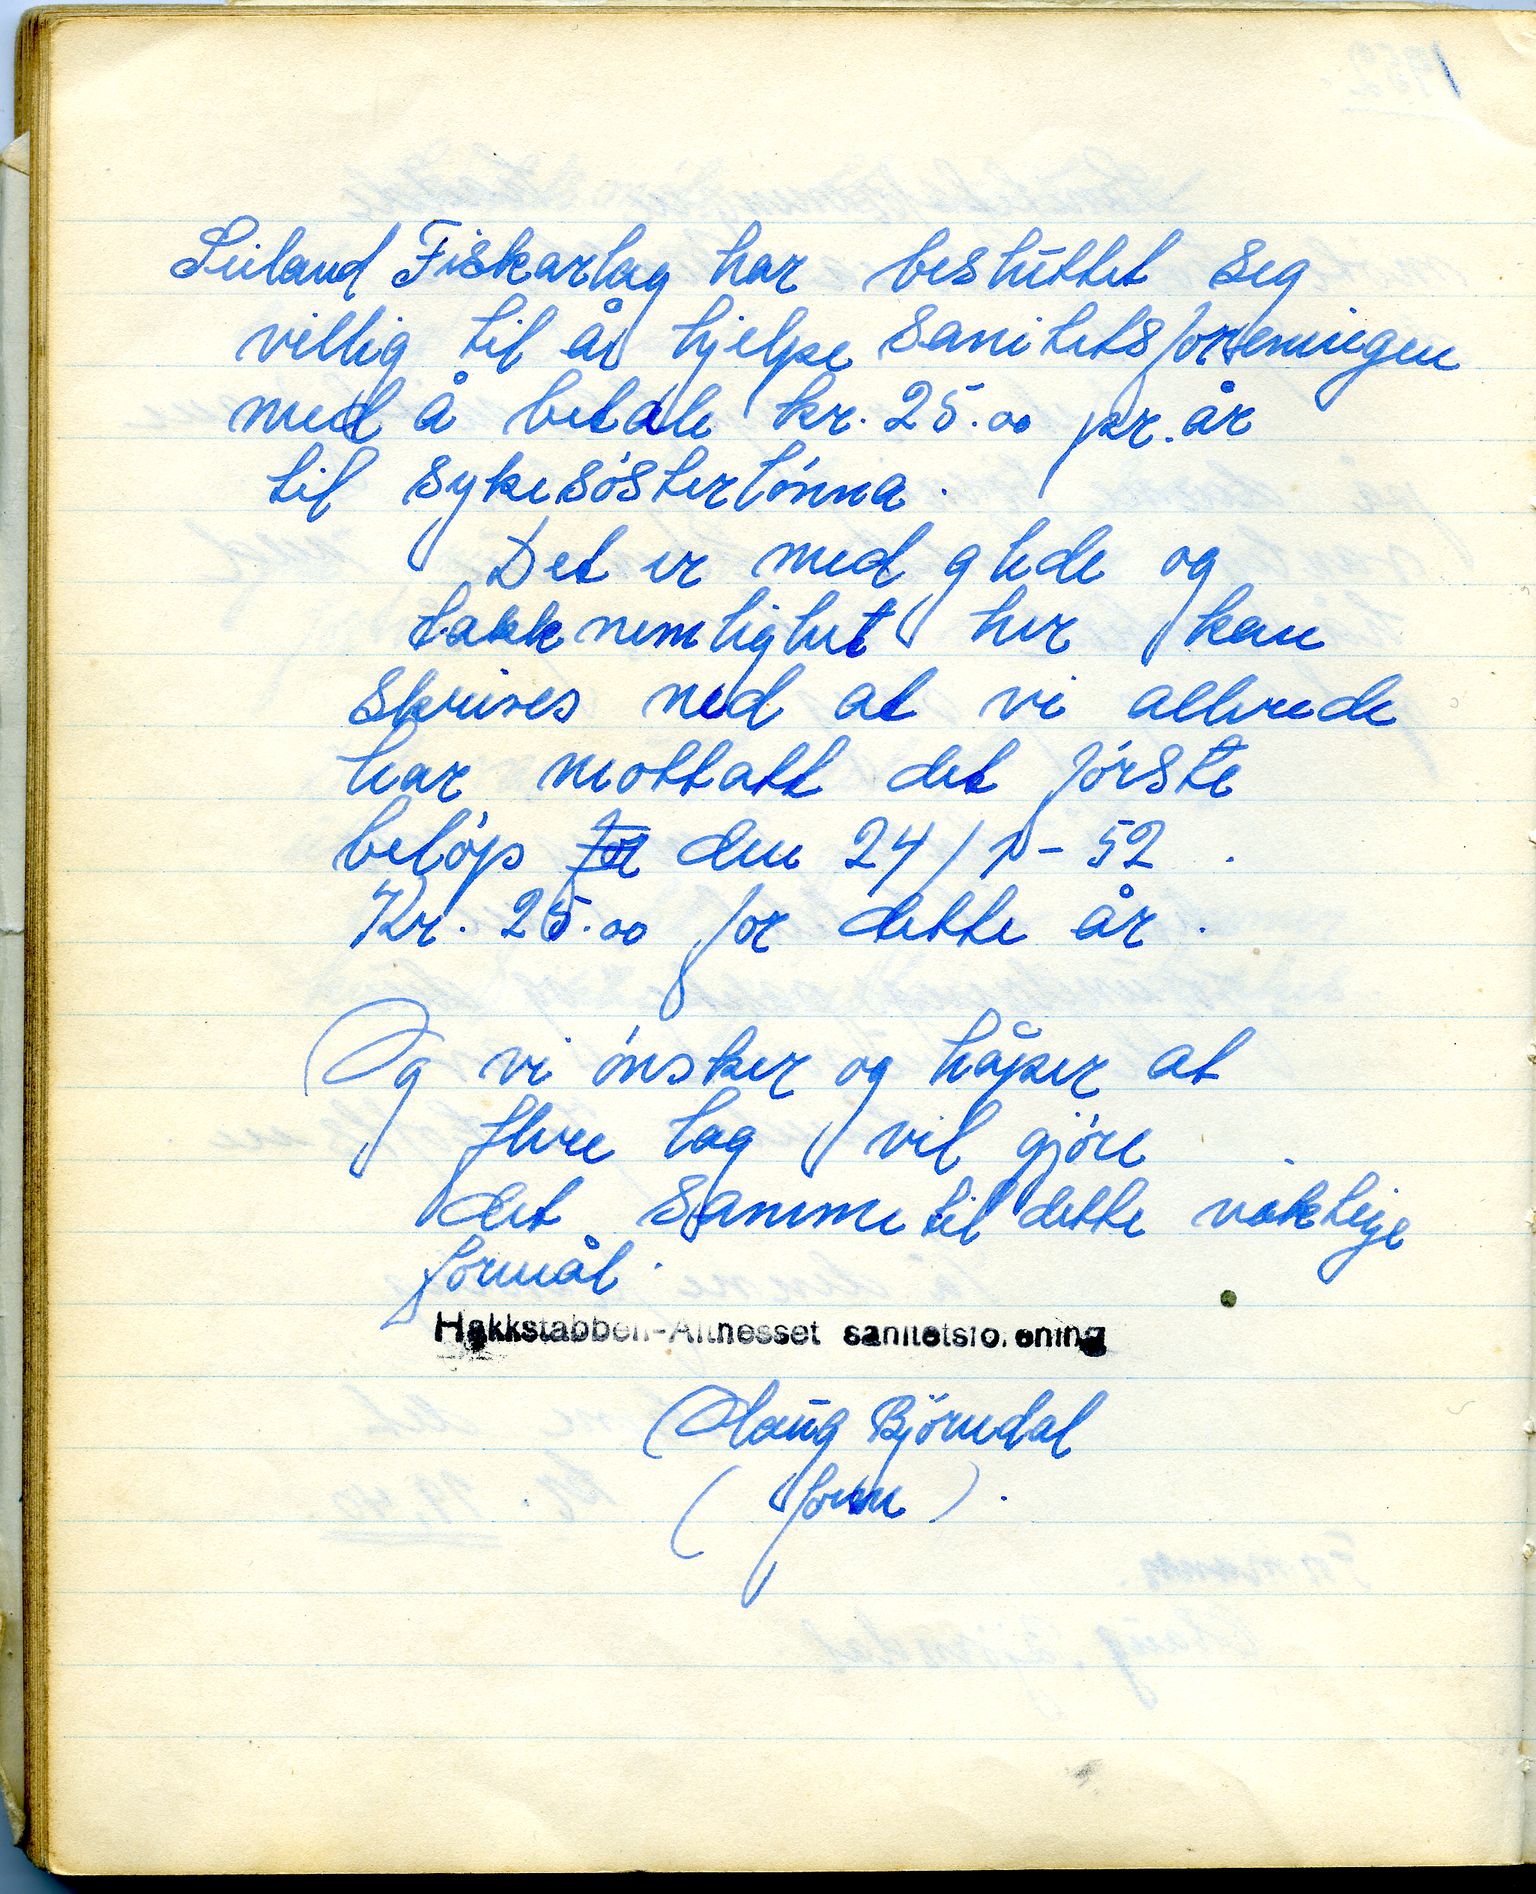 Seiland Fiskarlag har besluttet seg
villig til å hjelpe sanitetsforeningen
med å betale kr. 25.00 pr. år
til sykesósterlónna.
Det er med glede og
takknemlighet her kan
skrives ned at vi allerede
har mottatt det fórste
belóp for den 24/1-52.
Kr. 25.00 for dette år.
Og vi ónsker og håper at
flere lag vil gjóre
det samme til dette viktige
formål.
Hakkstabben-Altnesset sanitetsforening
Olaug Bjórndal
(form).